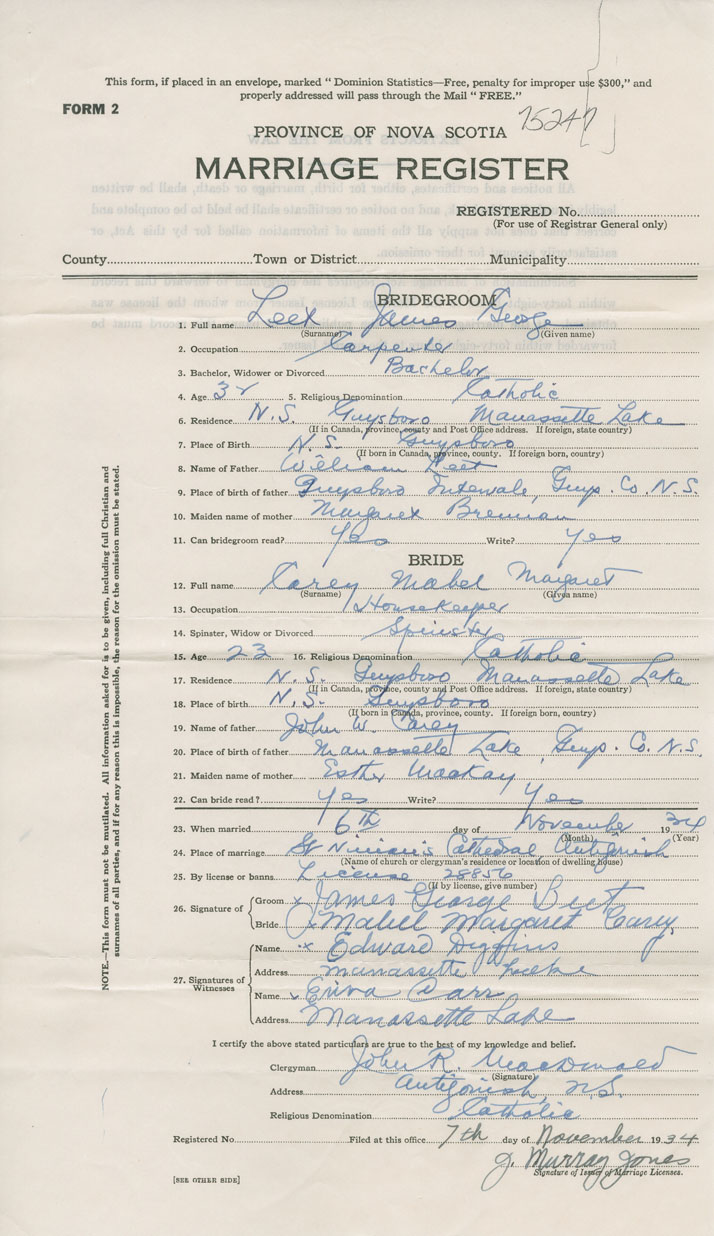 This form, if placed in an envelope, marked "Dominion Statistics—Free, penalty for improper use $300," and
properly addressed will pass through the Mail "FREE."
FORM 2
75247
PROVINCE OF NOVA SCOTIA
MARRIAGE REGISTER
REGISTERED No.
(For use of Registrar General only)
County Town or District Municipality
BRIDEGROOM
1. Full name Leet James George
(Surname) (Given name)
2. Occupation Carpenter
3. Bachelor, Widower or Divorced Bachelor
4. Age 32 5. Religious Denomination Catholic
6. Residence N.S. Guysboro Manassette Lake
(If in Canada, province, county and Post Office address. If foreign, state country)
7. Place of Birth N.S. Guysboro
(If born in Canada, province, county. If foreign born, country)
8. Name of Father William Leet
9. Place of birth of father Guysboro Intervale, Guys. Co. N.S.
10. Maiden name of mother Margaret Brennan
11. Can bridegroom read? Yes Write? Yes
BRIDE
12. Full name Carey Mabel Margaret
(Surname) (Given name)
13. Occupation Housekeeper
14. Spinster, Widow or Divorced Spinster
15. Age 23 16. Religious Denomination Catholic
17. Residence N.S. Guysboro Manassette Lake
(If in Canada, province, county and Post Office address. If foreign, state country)
18. Place of Birth N.S. Guysboro
(If born in Canada, province, county. If foreign born, country)
19. Name of father John W. Carey
20. Place of birth of father Manassette Lake, Guys. Co. N.S.
21. Maiden name of mother Esther MacKay
22. Can bride read? Yes Write? Yes
23. When married 6th day of November 1934
(Month) (Year)
24. Place of marriage St Ninian's Cathedral, Antigonish
(Name of church or clergyman's residence or location of dwelling house)
25. By license or banns License 28856
(If by license, give number)
26. Signature of Groom x James George
Bride x Mabel Margaret Carey
27. Signatures of Witnesses Name x Edward Diggins
Address manassette Lake
Name Erina Carr
Address Manassette Lake
I certify the above stated particulars are true to the best of my knowledge and belief.
Clergyman John R. MacDonald
(Signature)
Address Antigonish, N.S.
Religious Denomination Catholic
Registered No. Filed at this office 7th day of November 1934
J. Murray Jones
Signature of Issuer of Marriage Licenses.
[SEE OTHER SIDE]
NOTE.—This form must not be mutilated. All information asked for is to be given, including full Christian and
surnames of all parties, and if for any reason this is impossible, the reason for the omission must be stated.